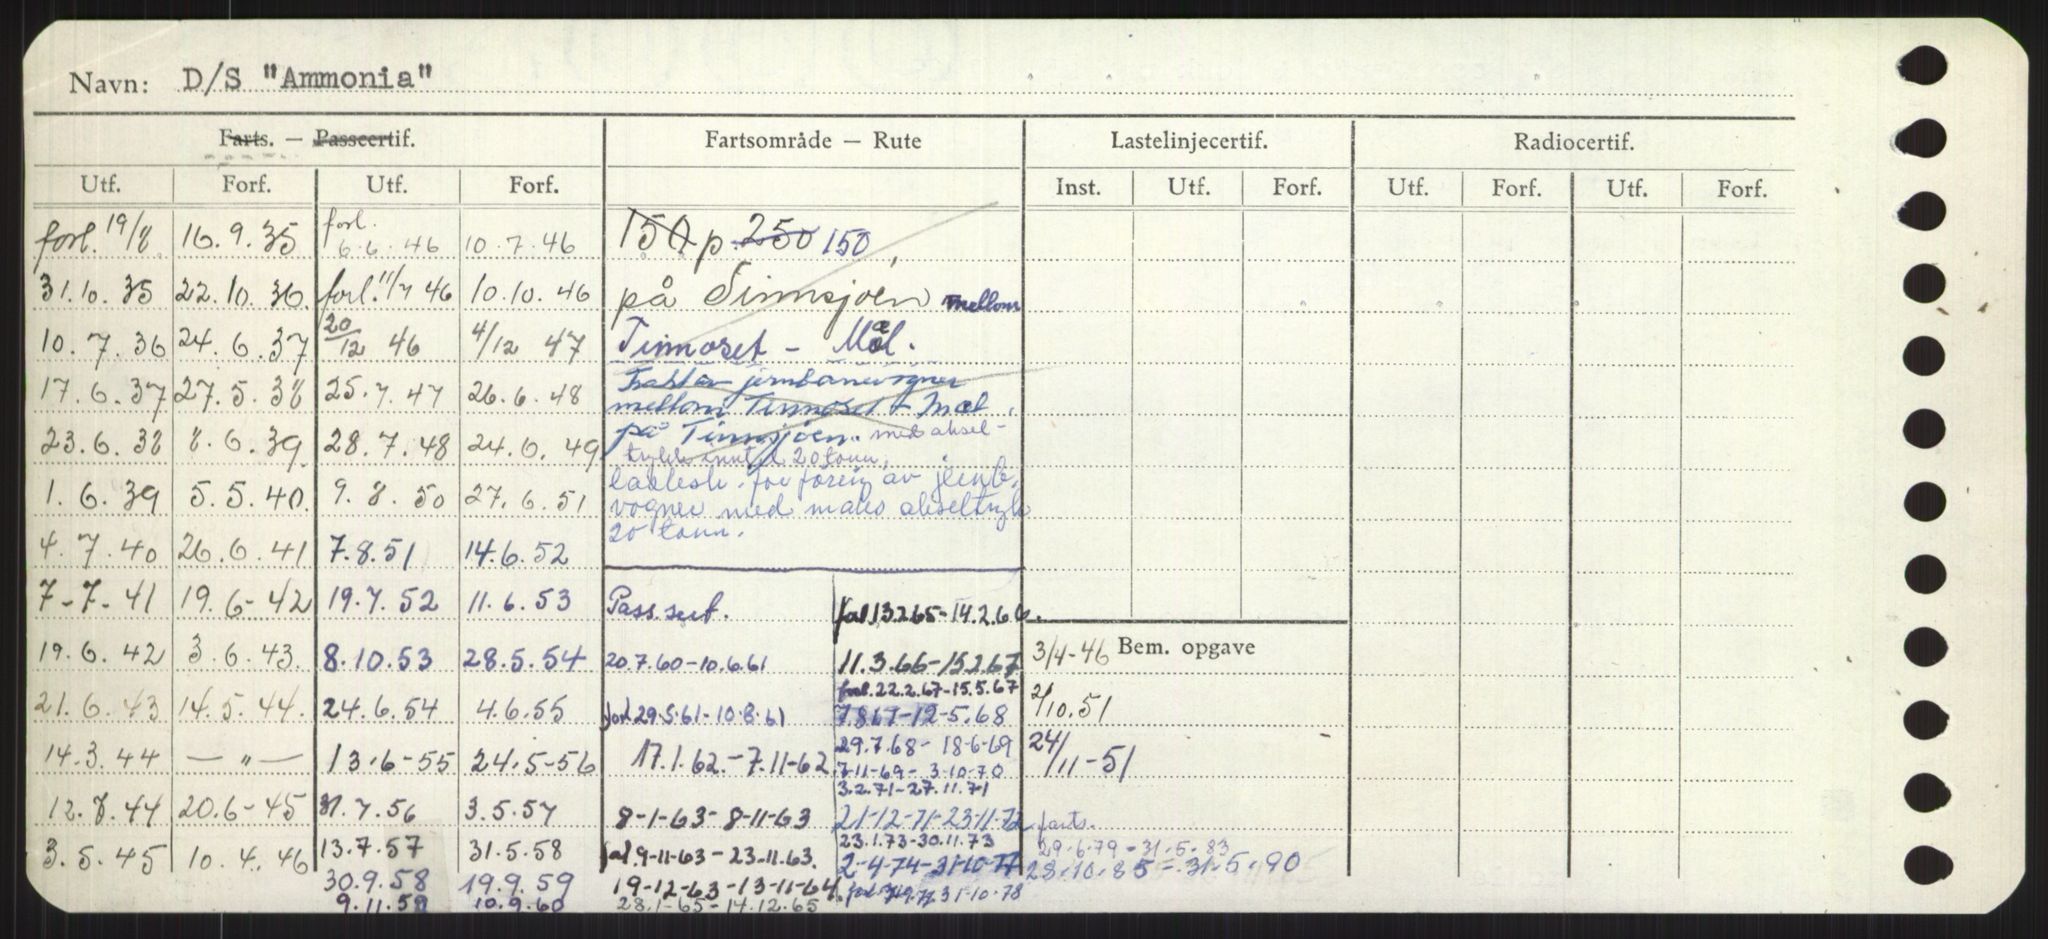 Navn: D/S "Ammonia"
Farts. — Passcertif. Fartsområde — Rute Lastelinjecertif. Radiocertif.
Utf. Forf. Utf. Forf. Inst. Utf. Forf. Utf. Forf. Utf. Forf.
forl. 19/8 16.9.35 forl. 6.6.46 10.7.46
31.10.35 22.10.36 forl. 11/7 46 10.10.46
10.7.36 24.6.37 20/12 46 4/12 47
17.6.37 27.5.38 25.7.47 26.6.48
23.6.38 8.6.39 28.7.48 24.6.49
1.6.39 5.5.40. 9.8.50 27.6.51
4.7.40 26.6.41 7.8.51 14.6.52
7-7-41 19.6-42 19.7.52 11.6.53
19.6.42 3.6.43. 8.10.53 28.5.54
21.6.43 14.5.44. 24.6.54 4.6.55
14.3.44 — " — 13.6-55 24.5-56
12.8.44 20.6-45 31.7.56 3.5.57
3.5.45 10.4.46 13.7.57 31.5.58
30.9.58 19.9.59
9.11.59 10.9.60
150 p. 250 150
på Tinnsjøen mellom
Tinnoset - Mæl.
Trakt av jernbanevogner
mellom Tinnoset - Mæl
på Tinnsjøen. med aksel-
trykk inntil 20 tonn.
lastesk. for føring av jernb.
vogner med maks akseltrykk
20 tonn.
Pass.sert.
20.7.60-10.6.61
forl 29.5.61-10.8.61
17.1.62.-7.11-62
8-1-63-8-11-63
forl. 9-11-63-23.11.63.
19-12-63-13-11-64
28.1-65-14.12.65
forl. 13.2.65-14.2.66.
11.3.66-15.2.67
forl. 22.2.67-15.5.67
7.8.67-12-5.68
29.7.68-18-6-69
7-11-69-3-10-70
3.2.71-27.11.71
21-12-71-23-11-72
23.1.73-30.11.73
2-4-74-31-10-77
31-10-78
Bem. opgave
3/4-46
2/10.51
24/11-51
farts.
29.6.79-31.5.83
28.10.85-31.5.90